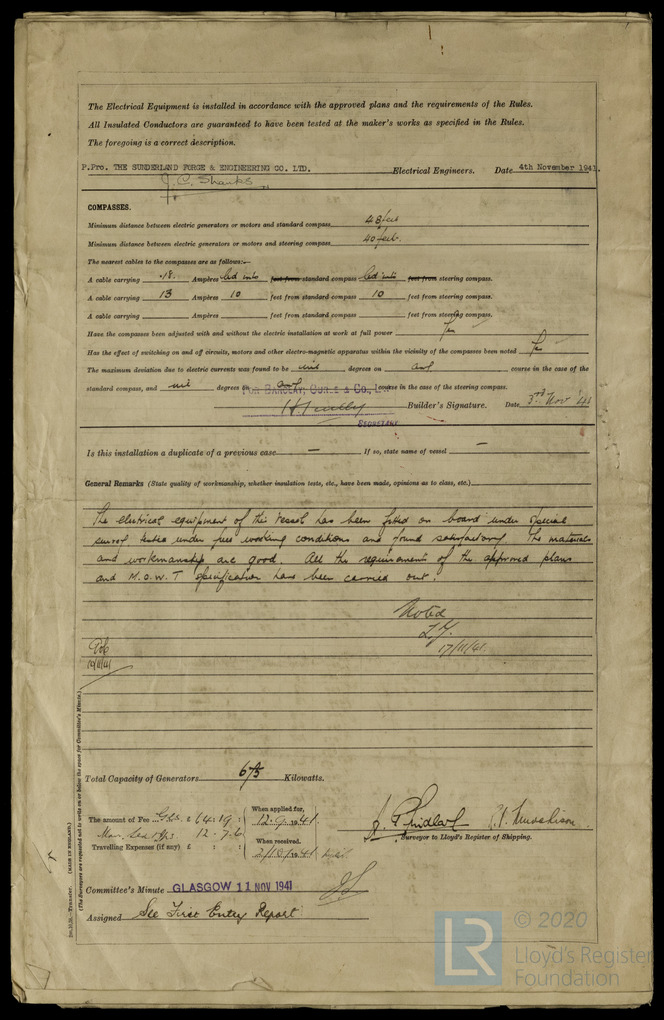 The Electrical Equipment is installed in accordance with the approved plans and the requirements of the Rules.
All Insulated Conductors are guaranteed to have been tested at the maker's works as specified in the Rules.
The foregoing is a correct description.
P.Pro. THE SUNDERLAND FORGE & ENGINEERING CO. LTD. Electrical Engineers. Date 4th November 1941.
J. C. Shanks
COMPASSES.
Minimum distance between electric generators or motors and standard compass 48 feet
Minimum distance between electric generators or motors and steering compass 40 feet.
The nearest cables to the compasses are as follows:—
A cable carrying .18. Ampères led into feet from standard compass led into feet from steering compass.
A cable carrying 13 Ampères 10 feet from standard compass 10 feet from steering compass.
A cable carrying Ampères feet from standard compass feet from steering compass.
Have the compasses been adjusted with and without the electric installation at work at full power Yes
Has the effect of switching on and off circuits, motors and other electro-magnetic apparatus within the vicinity of the compasses been noted Yes
The maximum deviation due to electric currents was found to be nil degrees on any course in the case of the
standard compass, and nil degrees on any course in the case of the steering compass.
FOR BARCLAY, CURLE & CO., LTD
Builder's Signature. Date 3rd Nov '41
SECRETARY
Is this installation a duplicate of a previous case — If so, state name of vessel —
General Remarks (State quality of workmanship, whether insulation tests, etc., have been made, opinions as to class, etc.)
The electrical equipment of this vessel has been fitted on board under special
survey tested under full working conditions and found satisfactory. The materials
and workmanship are good. All the requirements of the approved plans
and M.O.W.T specification have been carried out.
Noted
17/11/41
Total Capacity of Generators 675 Kilowatts.
The amount of Fee £ 64 : 19 : When applied for, 12.9.1941.
12 . 7 . 6
Travelling Expenses (if any) £ : : When received, 1941
Surveyor to Lloyd's Register of Shipping.
Committee's Minute GLASGOW 11 NOV 1941
Assigned See First Entry Report
(MADE IN ENGLAND.)
(The Surveyors are requested not to write on or below the space for Committee's Minute.)
LR © 2020
Lloyd's Register
Foundation